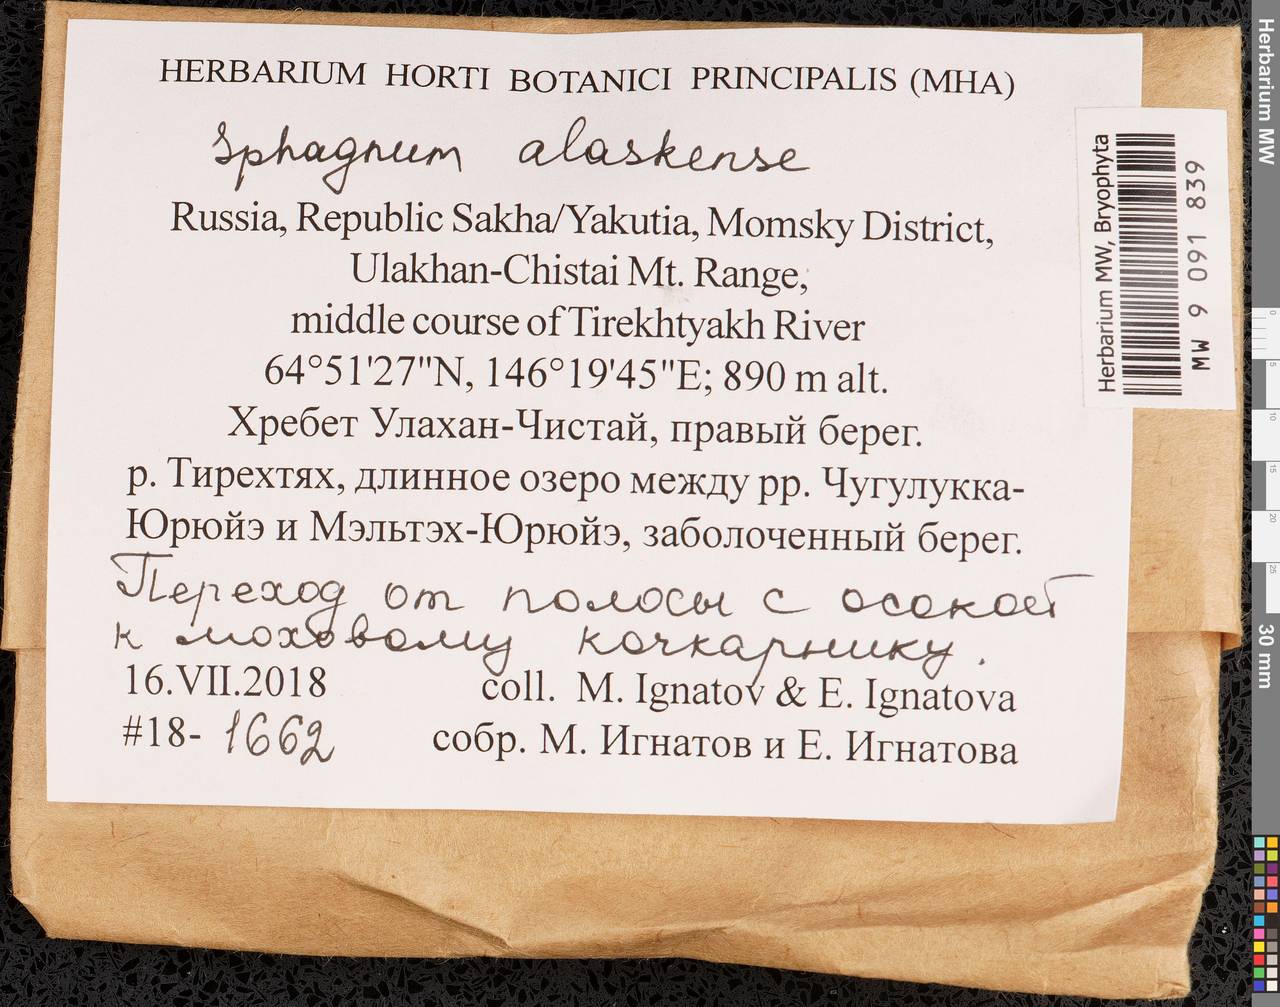 HERBARIUM HORTI BOTANICI PRINCIPALIS (MHA)
Sphagnum alaskense
Russia, Republic Sakha/Yakutia, Momsky District,
Ulakhan-Chistai Mt. Range,
middle course of Tirekhtyakh River
64°51'27"N, 146°19'45"E; 890 m alt.
Хребет Улахан-Чистай, правый берег.
р. Тирехтях, длинное озеро между рр. Чугулукка-
Юрюйэ и Мэльтэх-Юрюйэ, заболоченный берег.
Переход от полосы с осокой
к моховому кочкарнику.
16.VII.2018 coll. M. Ignatov & E. Ignatova
#18- 1662 собр. М. Игнатов и Е. Игнатова
Herbarium MW, Bryophyta
MW 9 091 839
Herbarium MW
0
5
10
15
20
25
30 mm